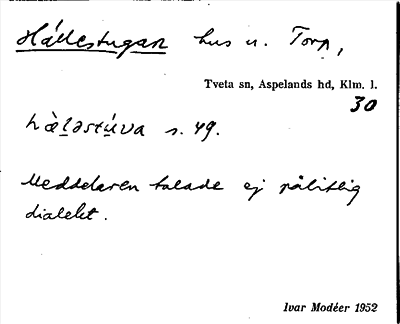 Hällestugan hus u. Torp,
Tveta sn, Aspelands hd, Klm. l.
30
s. 49.
Meddelaren talade ej pålitlig
dialekt.
Ivar Modéer 1952